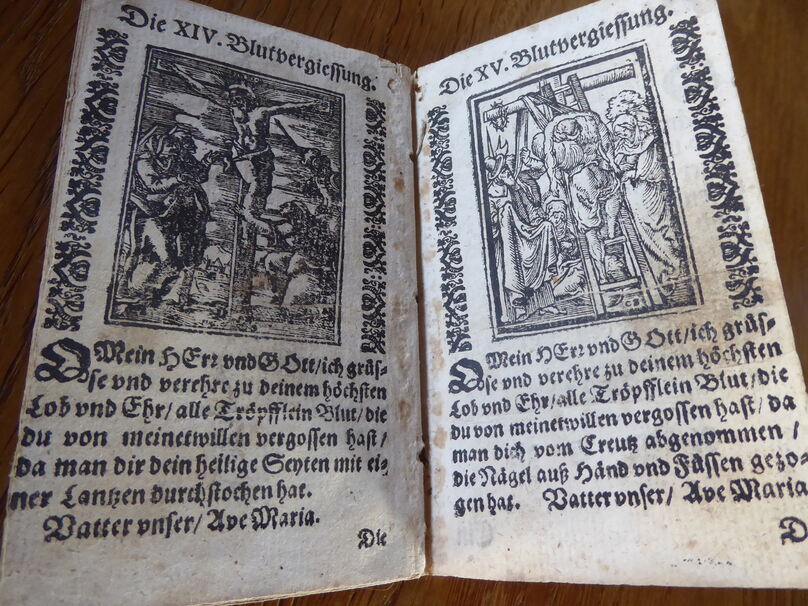 Die XIV. Blutvergiessung.
O Mein HErr vnd GOtt/ich grüs-
se vnd verehre zu deinem höchsten
Lob vnd Ehr/alle Tröpfflein Blut/die
du von meinetwillen vergossen hast/
da man dir dein heilige Seyten mit ei-
ner Lantzen durchstochen hat.
Vatter vnser/ Ave Maria.
Die
Die XV. Blutvergiessung.
O Mein HErr vnd GOtt/ich grüs-
se vnd verehre zu deinem höchsten
Lob vnd Ehr/alle Tröpfflein Blut/die
du von meinetwillen vergossen hast/ da
man dich vom Creutz abgenommen /
die Nägel auß Händ vnd Füssen gezo-
gen hat. Vatter vnser/ Ave Maria
D